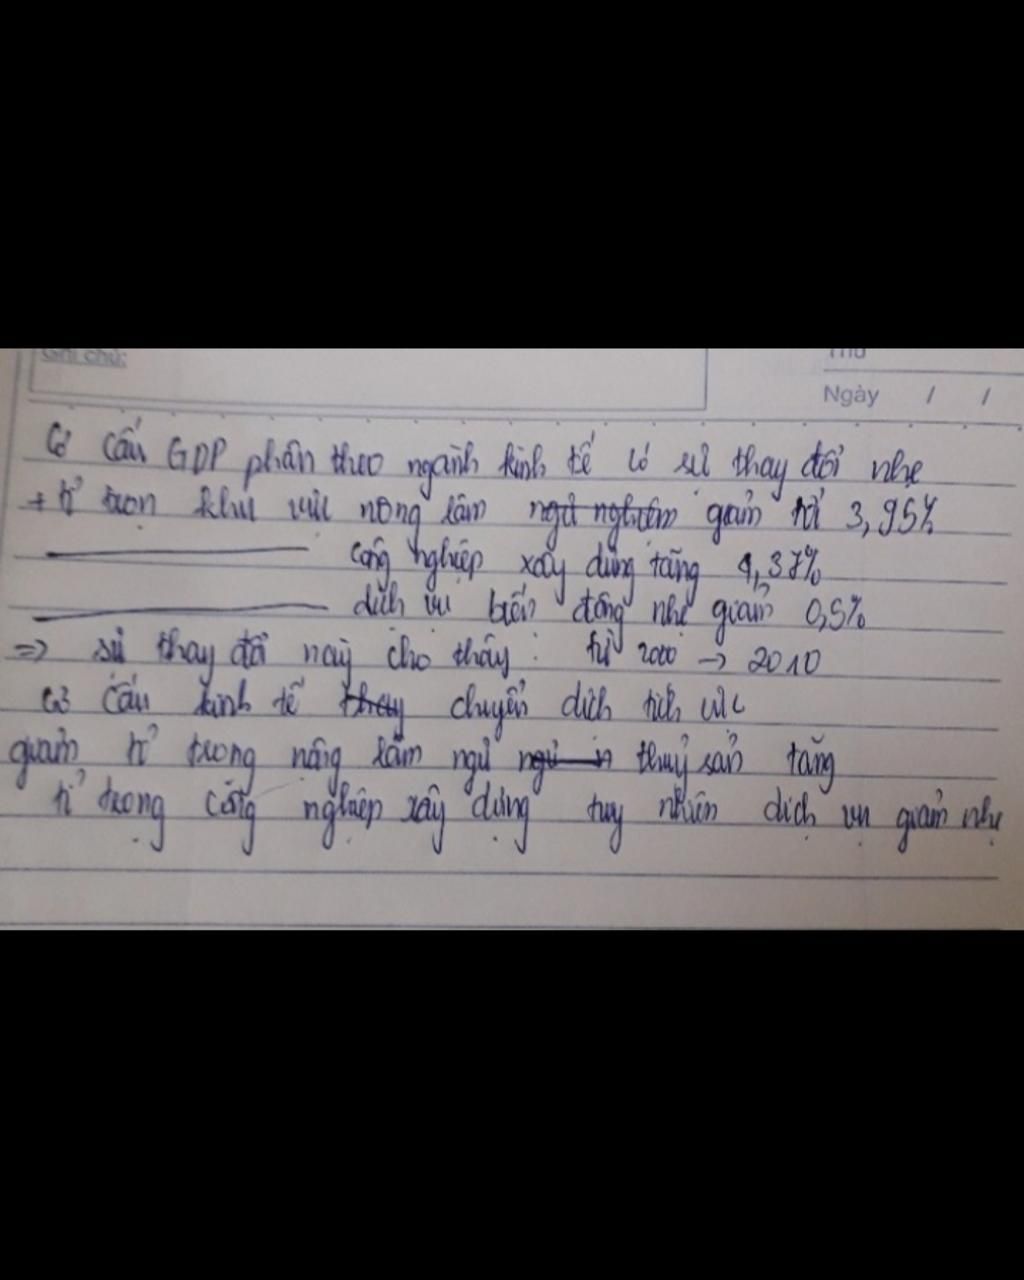 Ghi chú:
Thứ
Ngày / /
Cơ cấu GDP phân theo ngành kinh tế có sự thay đổi nhẹ
+ tỉ trọn khu vực nông lâm ngư nghiêm giảm tới 3,95%
công nghiệp xây dựng tăng 4,37%
dịch vụ biến động nhẹ giảm 0,5%
=> sự thay đổi này cho thấy : từ 2000 -> 2010
cơ cấu kinh tế thay chuyển dịch tích cực
giảm tỉ trong nông lâm ngư thuỷ sản tăng
tỉ trọng công nghiệp xây dựng tuy nhiên dịch vụ giảm nhẹ